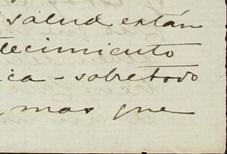 salud están
tecimiento
ica - sobre todo
, mas que